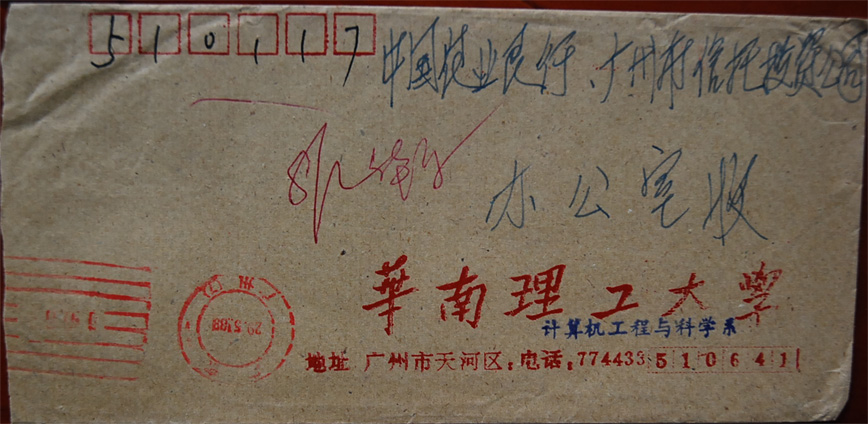 510117
中国农业银行、广州市信托投资公司
办公室收
華南理工大學
计算机工程与科学系
地址 广州市天河区:电话:774433 510641